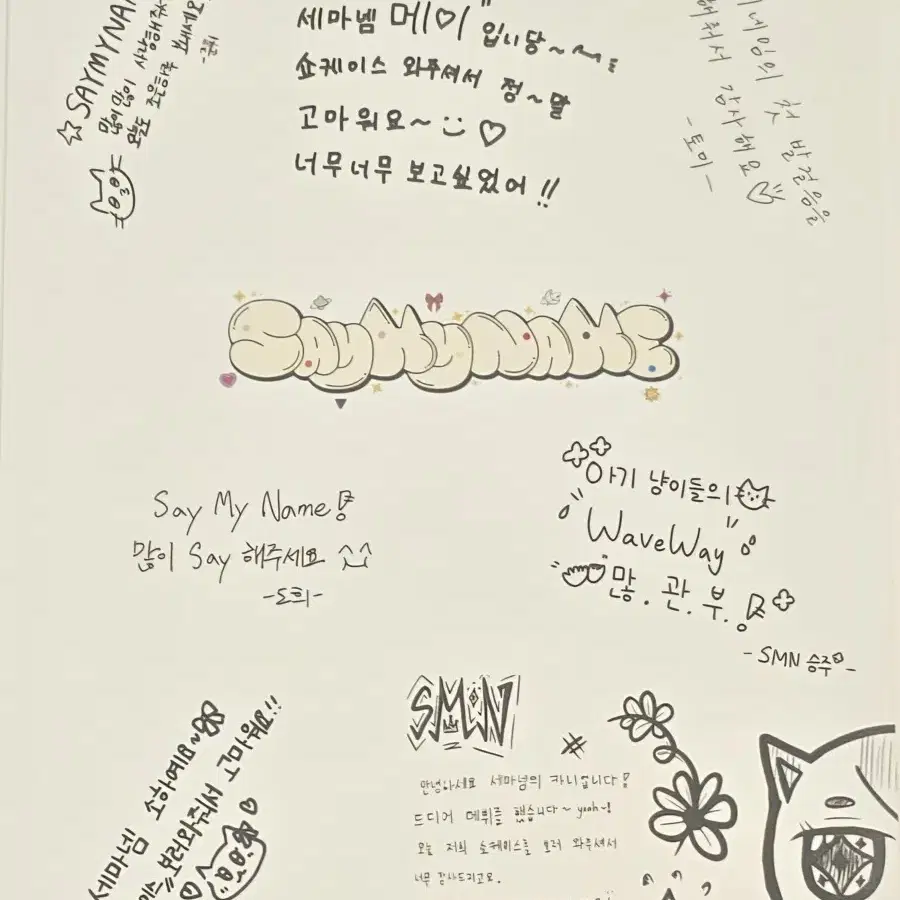 ☆ SAYMYNA
많이많이 사랑해주
오늘도 좋은하루 보내세요
세마넴 메이 입니당~
쇼케이스 와주셔서 정~말
고마워요~
너무너무 보고싶었어!!
네임의 첫 발걸음을
해줘서 감사해요
-토미-
SAY MY NAME
Say My Name!
많이 Say 해주세요 ^^
-도희-
아기 냥이들의
"WaveWay"
많.관.부.!
- SMN 승주 -
세마넴 소하예요~
보러와줘서 고마워요!!
SMN
안녕하세요 세마넴의 카니입니다!
드디어 데뷔를 했습니다~ yeah~!
오늘 저희 쇼케이스를 보러 와주셔서
너무 감사드리고요.